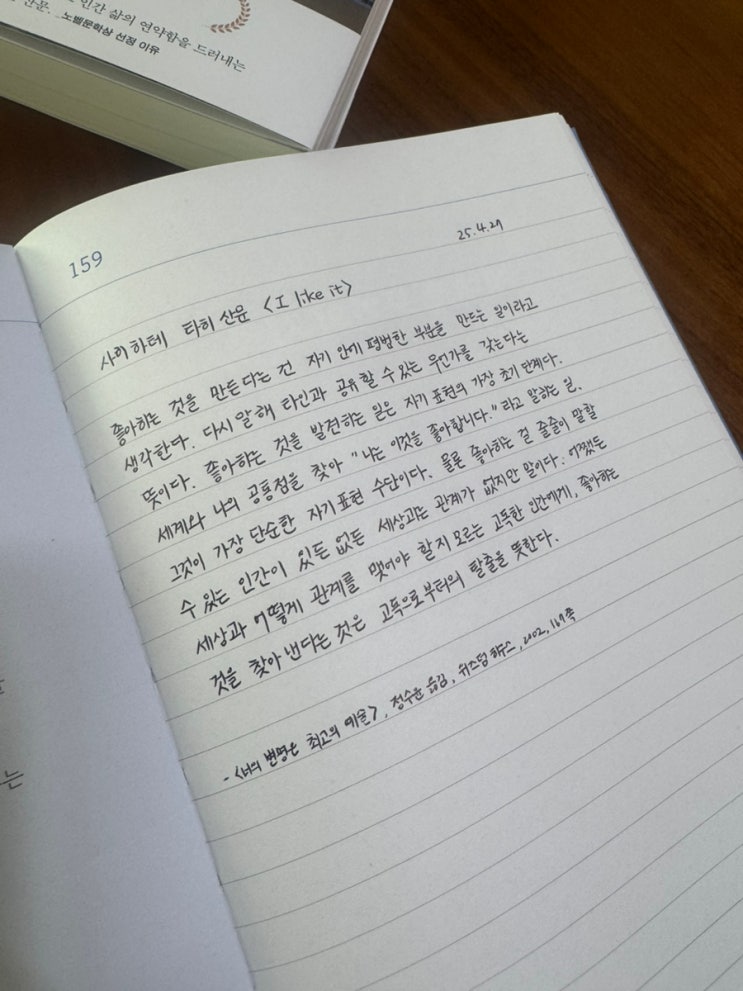 인간 삶의 연약함을 드러내는
산문. _노벨문학상 선정 이유
159
25.4.29
사이하테 타히 산문 <I like it>
좋아하는 것을 만든다는 건 자기 안에 평범한 부분을 만드는 일이라고
생각한다. 다시 말해 타인과 공유할 수 있는 무언가를 갖는다는
뜻이다. 좋아하는 것을 발견하는 일은 자기 표현의 가장 초기 단계다.
세계와 나의 공통점을 찾아 "나는 이것을 좋아합니다." 라고 말하는 일.
그것이 가장 단순한 자기 표현 수단이다. 물론 좋아하는 걸 줄줄이 말할
수 있는 인간이 있든 없든 세상과는 관계가 없지만 말이다. 어쨌든
세상과 어떻게 관계를 맺어야 할지 모르는 고독한 인간에게, 좋아하는
것을 찾아 낸다는 것은 고독으로부터의 탈출을 뜻한다.
- <너의 변명은 최고의 예술>, 정수윤 옮김, 위즈덤하우스, 2002, 169쪽
는